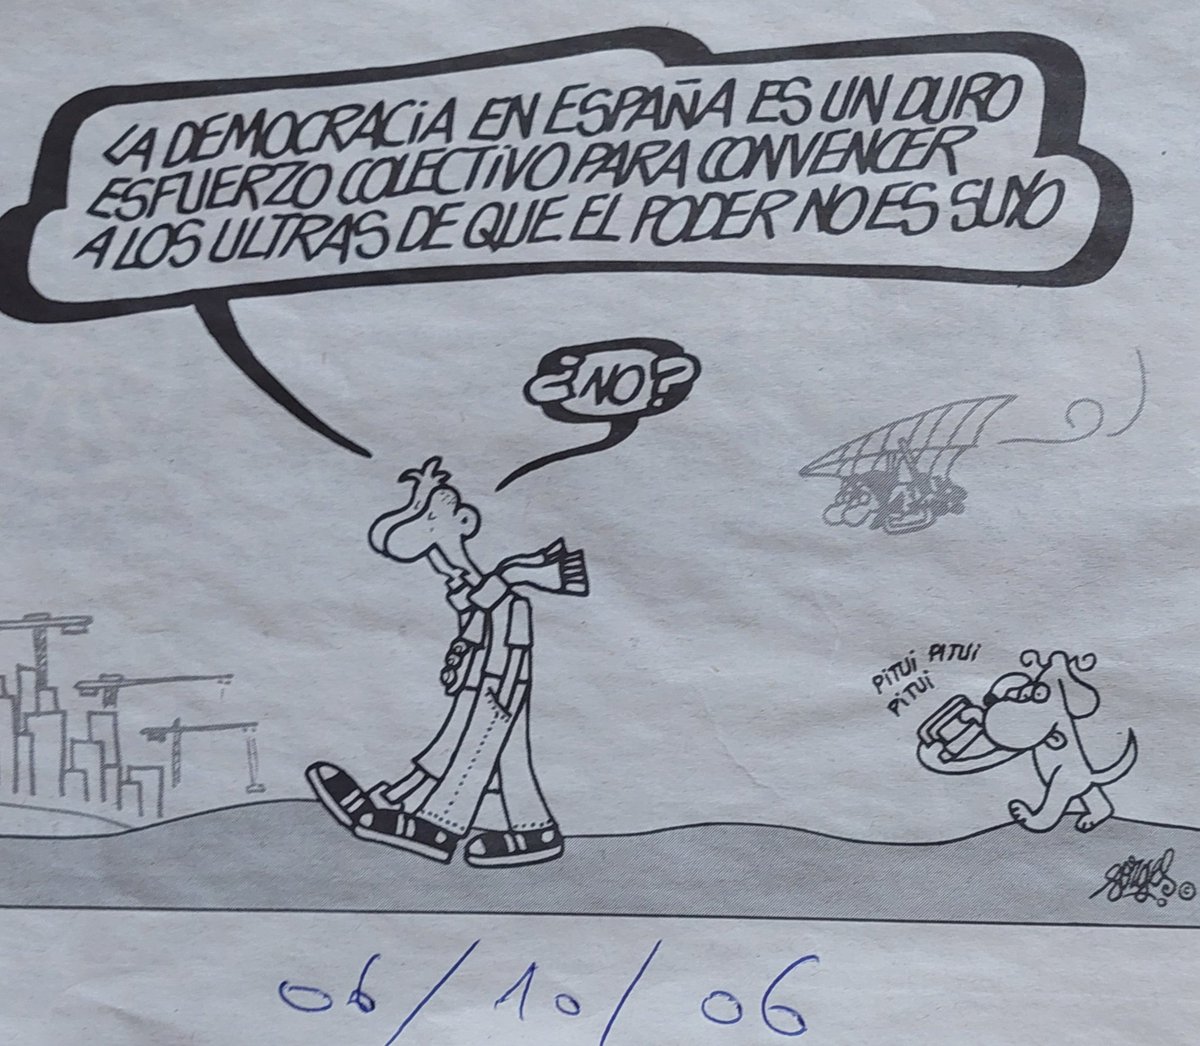 LA DEMOCRACiA EN ESPAÑA ES UN DURO
ESFUERZO COLECTiVO PARA CONVENCER
A LOS ULTRAS DE QUE EL PODER NO ES SUYO
¿NO?
PiTUi PiTUi
PiTUi
Forges ©
06/10/06